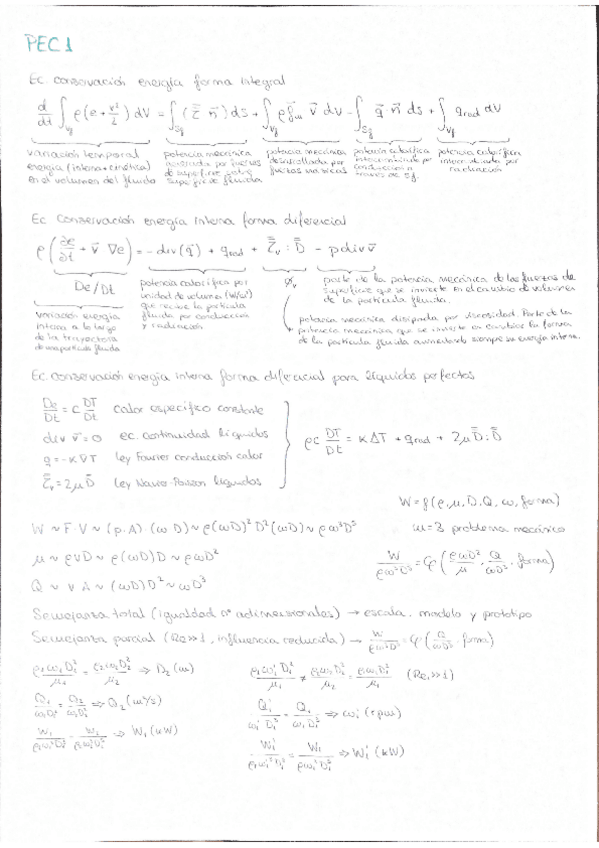 PEC1
Ec. conservación energía forma integral
d/dt ∫_Vf ρ(e + v²/2) dV = ∫_Sf (τ̿ n̄) dS + ∫_Vf ρ f̄m v̄ dV - ∫_Sf q̄ · n̄ dS + ∫_Vf q_rad dV
variación temporal energía (interna + cinética) en el volumen del fluido
potencia mecánica por fuerzas de superficie sobre superficie fluida
potencia mecánica desarrollada por fuerzas másicas
potencia calorífica por conducción a través de Sf
potencia calorífica intercambiada por radiación
Ec conservación energía interna forma diferencial
ρ (∂e/∂t + v̄ ∇e) = - div(q̄) + q_rad + τ̿v : D̿ - p div v̄
De/Dt
variación energía interna a lo largo de la trayectoria de una partícula fluida
potencia calorífica por unidad de volumen (W/m³) que recibe la partícula fluida por conducción y radiación
Φv
parte de la potencia mecánica de las fuerzas de superficie que se invierte en el cambio de volumen de la partícula fluida.
potencia mecánica disipada por viscosidad. Parte de la potencia mecánica que se invierte en cambiar la forma de la partícula fluida aumentando siempre su energía interna.
Ec. conservación energía interna forma diferencial para líquidos perfectos
De/Dt = c DT/Dt calor específico constante
div v̄ = 0 ec. continuidad líquidos
q = -κ∇T ley Fourier conducción calor
τ̿v = 2μ D̿ ley Navier-Poisson líquidos
ρc DT/Dt = κΔT + q_rad + 2μ D̿ : D̿
W = f(ρ, μ, D, Q, ω, forma)
W ~ F·V ~ (p·A)·(ωD) ~ ρ(ωD)² D² (ωD) ~ ρω³D⁵
m = 3 problema mecánico
μ ~ ρvD ~ ρ(ωD)D ~ ρωD²
W/ρω³D⁵ = φ(ρωD²/μ, Q/ωD³, forma)
Q ~ vA ~ (ωD)D² ~ ωD³
Semejanza total (igualdad nº adimensionales) → escala, modelo y prototipo
Semejanza parcial (Re>>1, influencia reducida) → W/ρω³D⁵ = φ(Q/ωD³, forma)
ρ₁ω₁D₁²/μ₁ = ρ₂ω₂D₂²/μ₂ ⇒ D₂ (m)
ρ₁ω₁'D₁²/μ₁ ≠ ρ₁ω₁D₁²/μ₁ (Re,>>1)
Q₁/ω₁D₁³ = Q₂/ω₂D₂³ ⇒ Q₂ (m³/s)
Q₁'/ω₁'D₁³ = Q₁/ω₁D₁³ ⇒ ω₁' (rpm)
⇒ W₁ (kW)
⇒ W₁' (kW)